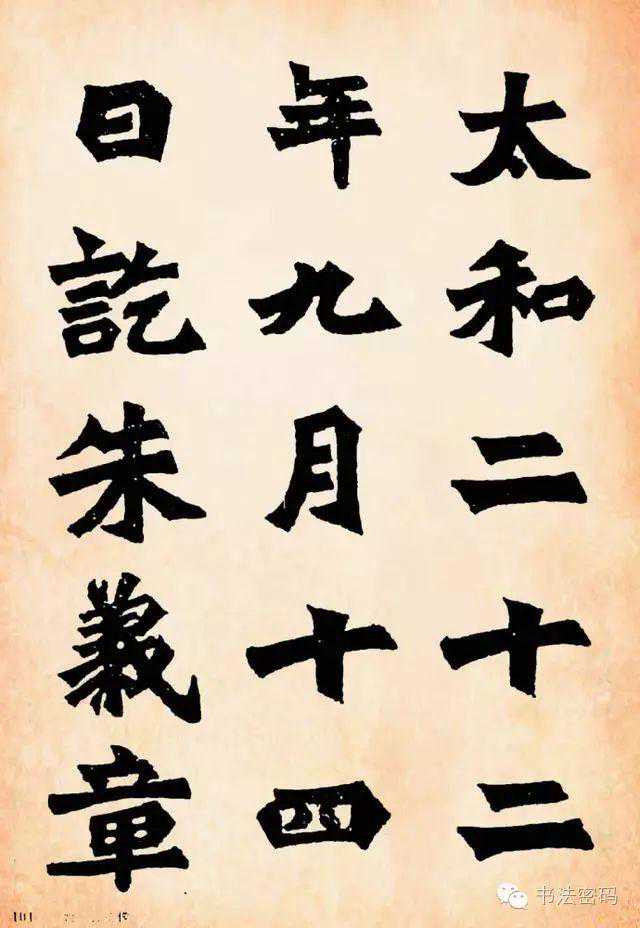 太和二十二
年九月十四
日訖朱義章
书法密码
101